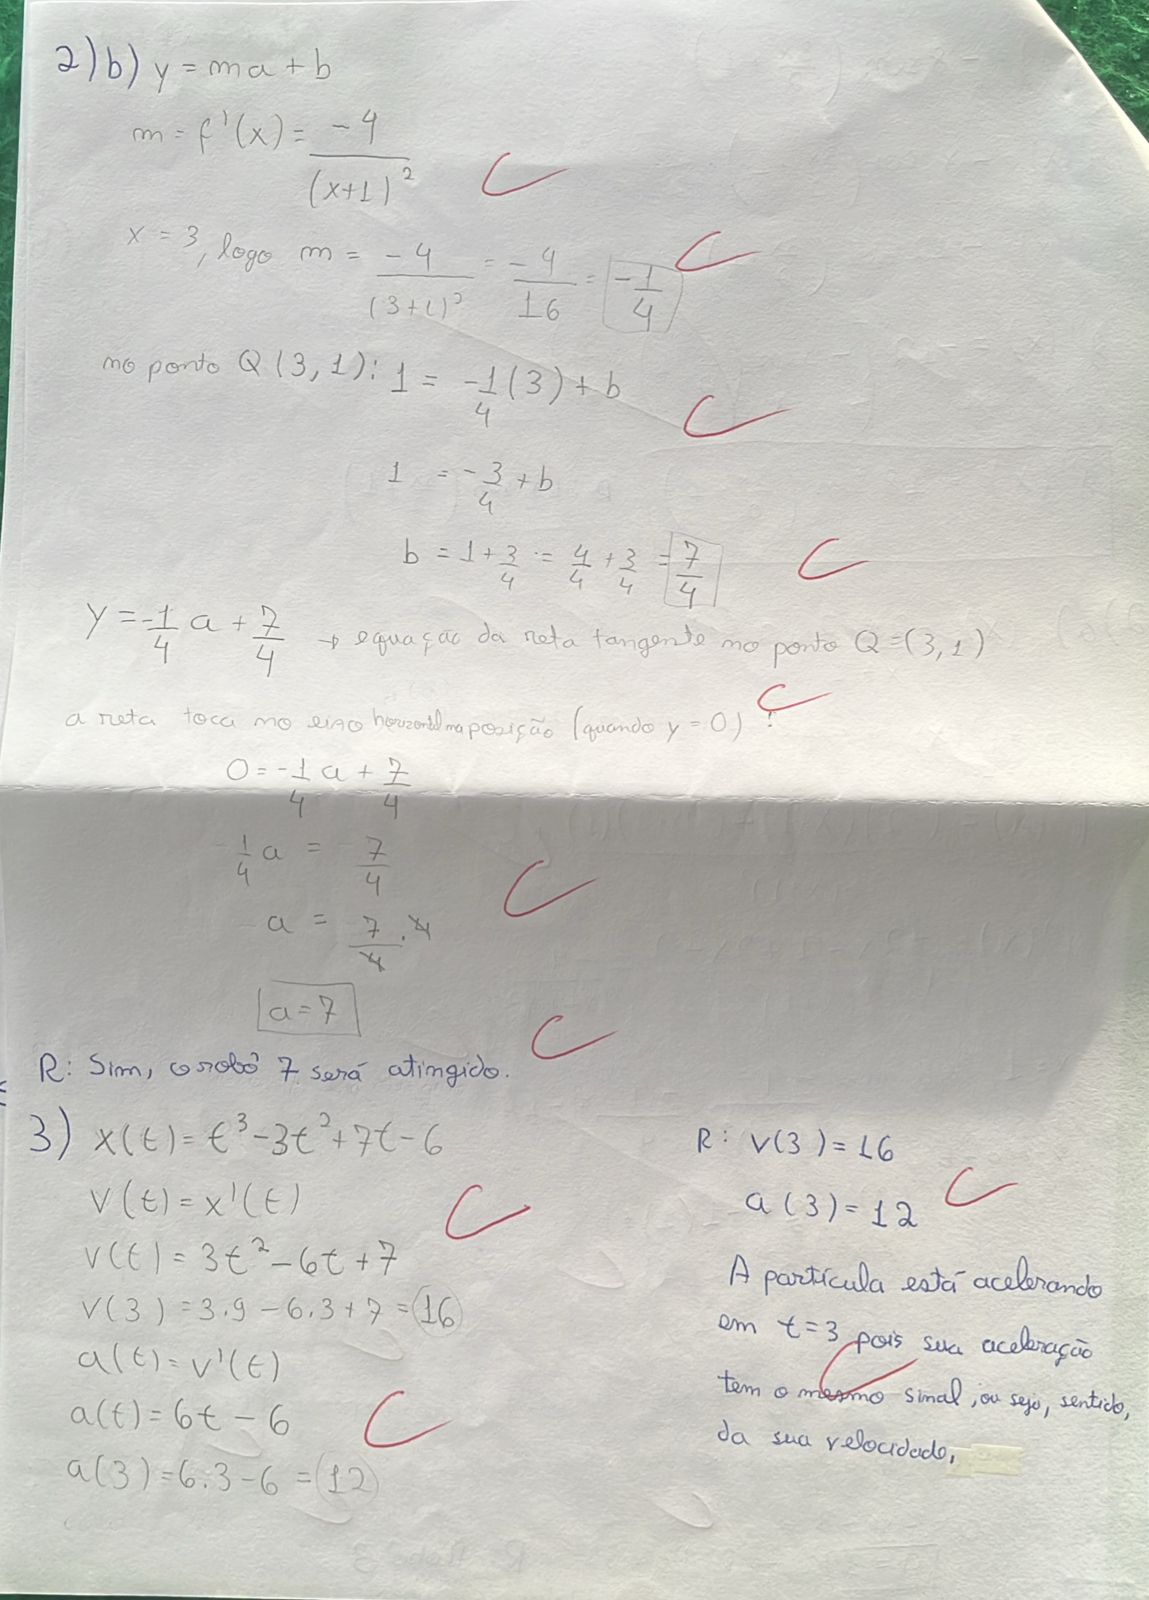 2)b) y = ma + b
m = f'(x) = -4/(x+1)²
x = 3, logo m = -4/(3+1)² = -4/16 = -1/4
no ponto Q (3, 1): 1 = -1/4 (3) + b
1 = -3/4 + b
b = 1 + 3/4 = 4/4 + 3/4 = 7/4
y = -1/4 a + 7/4 → equação da reta tangente no ponto Q = (3, 1)
a reta toca no eixo horizontal na posição (quando y = 0) :
0 = -1/4 a + 7/4
1/4 a = 7/4
a = 7/4 . 4
a = 7
R: Sim, o robô 7 será atingido.
3) x(t) = t³ - 3t² + 7t - 6
v(t) = x'(t)
v(t) = 3t² - 6t + 7
v(3) = 3.9 - 6.3 + 7 = 16
a(t) = v'(t)
a(t) = 6t - 6
a(3) = 6.3 - 6 = 12
R: v(3) = 16
a(3) = 12
A partícula está acelerando
em t = 3 pois sua aceleração
tem o mesmo sinal, ou seja, sentido,
da sua velocidade.